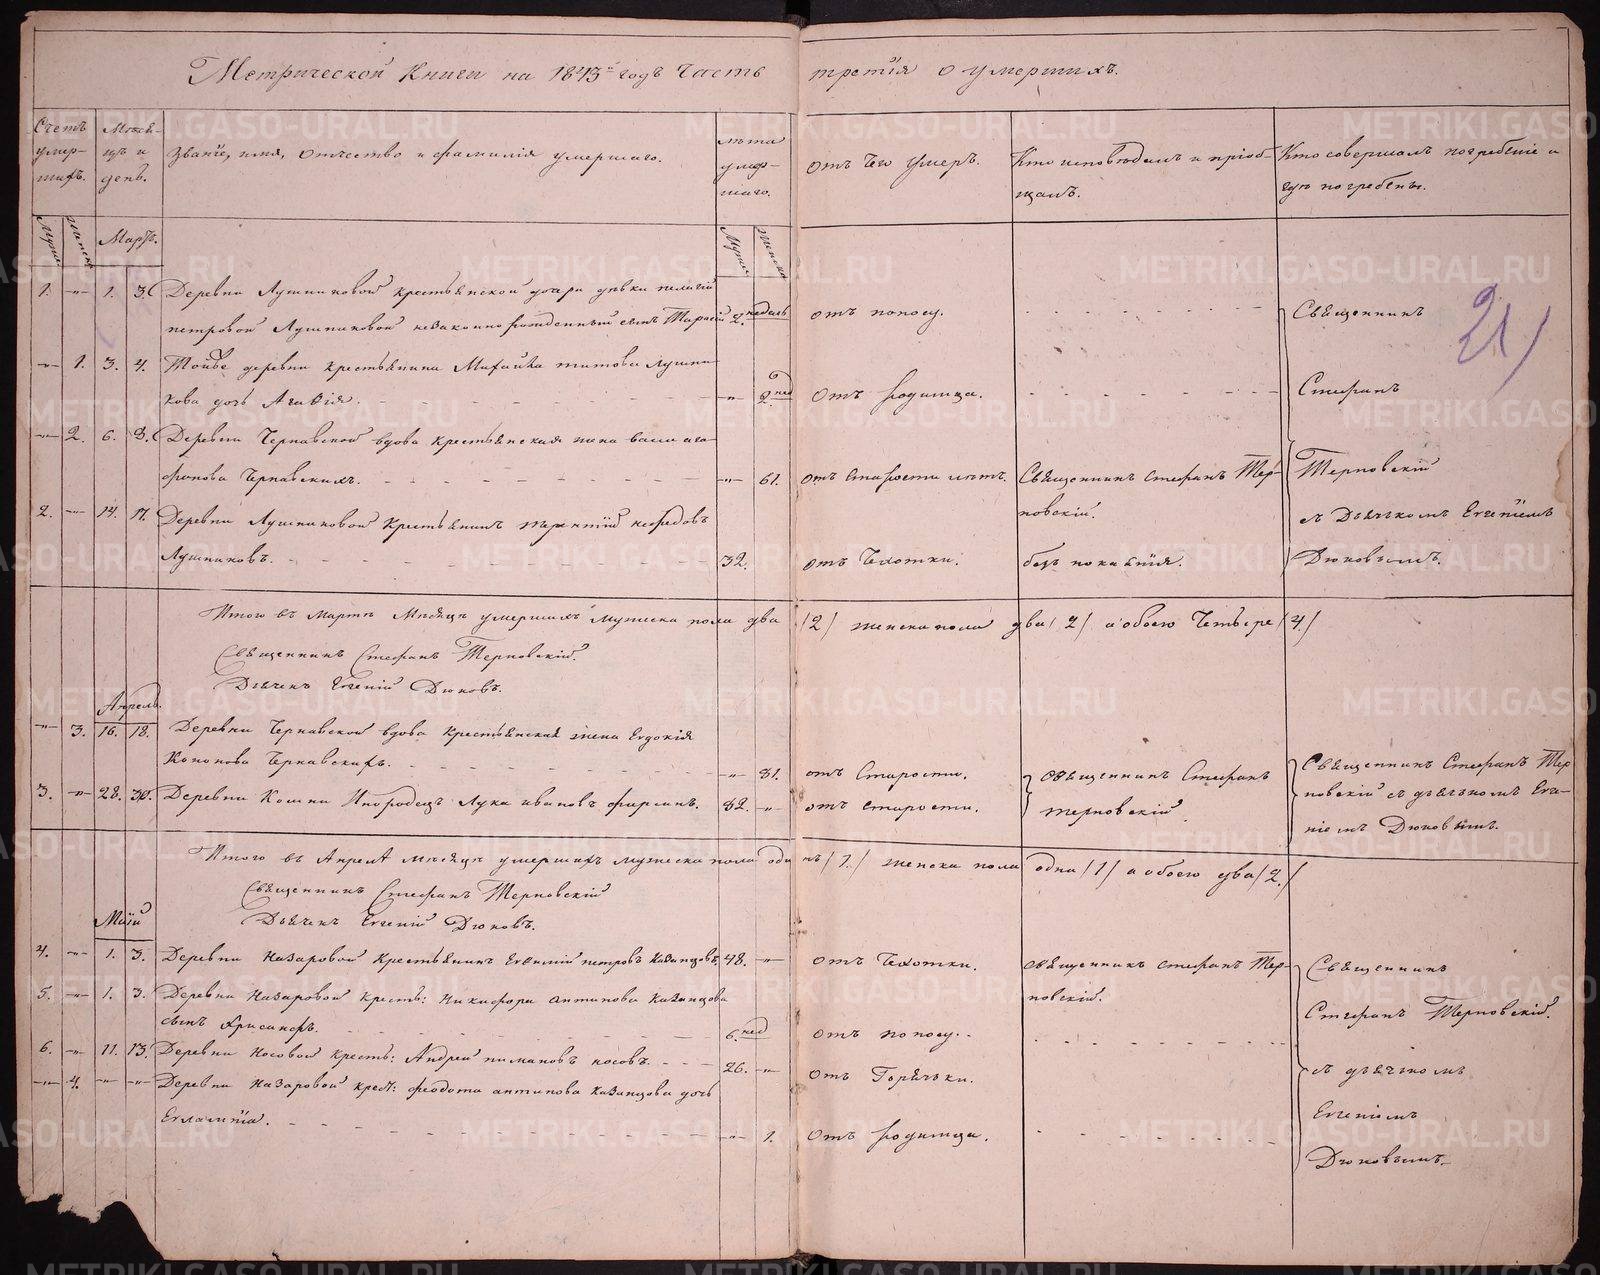 Метрической книги на 1843й годъ часть третія о умершихъ.
Счетъ умер-шихъ.
Мѣся-цъ и день.
Званіе, имя, отчество и фамилія умершаго.
лѣта умер-шаго.
отъ чего умеръ.
Кто исповѣдалъ и пріоб-щалъ.
Кто совершалъ погребеніе и гдѣ погребены.
Муже
Женска
Мартъ.
Муже
Женска
1. -"- 1. 3. Деревни Лушниковой крестьянской дочери дѣвки пелагіи
петровой Лушниковой незаконно рожденный сынъ Тарасій 2. недѣль отъ поносу. Священникъ
21/
-"- 1. 3. 4. Тойже деревни крестьянина Михайла титова Лушни-
кова дочь Агафія. -"- 2. нед отъ родимца. Стефанъ
-"- 2. 6. 8. Деревни Чернавской вдова крестьянская жена
фонова Чернавскихъ. -"- 61. отъ старости лѣтъ. Священникъ стефанъ Тер- Терновскій
2. -"- 14. 17. Деревни Лушниковой крестьянинъ терентій нефедовъ новскій. съ Дьячкомъ Евгеніемъ
Лушниковъ. 32. отъ Чехотки. безъ покаянія. Дюковымъ.
Итого въ мартѣ мѣсяцѣ умершихъ мужеска пола два /2/ женска пола два /2/ а обоего четыре /4/
Священникъ Стефанъ Терновскій.
Дьячекъ Евгеній Дюковъ.
Апрель.
-"- 3. 16. 18. Деревни Чернавской вдова крестьянская жена Евдокія
Кононова Чернавскихъ. -"- 81. отъ Старости. священникъ Стефанъ Священникъ Стефанъ Тер
3. -"- 28. 30. Деревни Кошни Инородецъ Лука ивановъ фирсинъ. 82. -"- отъ старости. терновскій. новскій съ дьячкомъ Евге-
ніемъ Дюковымъ.
Итого въ Апрелѣ мѣсяцѣ умершихъ мужеска пола одинъ /1/ женска пола одна /1/ а обоего два /2./
Священникъ Стефанъ Терновскій
Дьячекъ Евгеній Дюковъ.
Маій
4. -"- 1. 3. Деревни Назаровой Крестьянинъ Евѳимій петровъ Казанцовъ. 48. -"- отъ Чехотки. священникъ стефанъ Тер- Священникъ
5. -"- 1. 3. Деревни Назаровой кресть: Никифора антипова Казанцова новскій.
сынъ Хрисанфъ. 6. нед отъ поносу. Стефанъ Терновскій.
6. -"- 11. 13. Деревни Носовой кресть: Андрей пимановъ носовъ. 26. -"- отъ Горячки. съ дьячкомъ
-"- 4. -"- -"- Деревни Назаровой крест: феодота антипова Казанцова дочь Евгеніемъ
Евлампіа. -"- 1. отъ родимца. Дюковымъ.